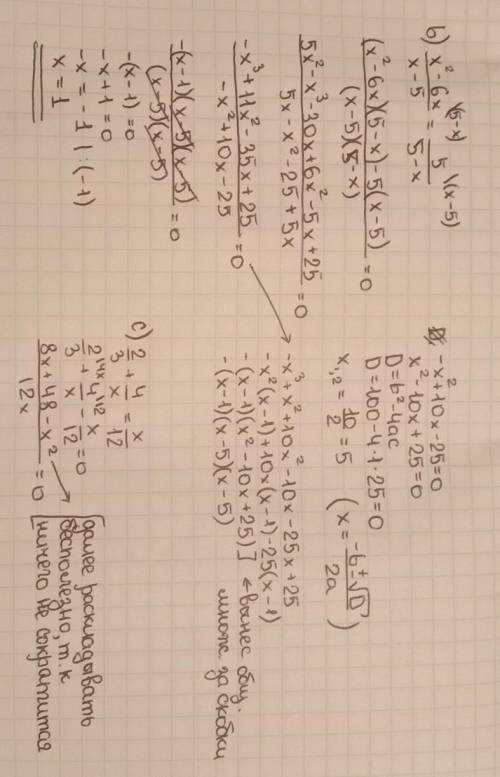 b) x² - 6x / x - 5 \(5-x) = 5 / 5 - x \(x-5)
(x² - 6x)(5 - x) - 5(x - 5) / (x - 5)(5 - x) = 0
5x² - x³ - 30x + 6x² - 5x + 25 / 5x - x² - 25 + 5x = 0
-x³ + 11x² - 35x + 25 / -x² + 10x - 25 = 0
-(x - 1)(x - 5)(x - 5) / (x - 5)(x - 5) = 0
-(x - 1) = 0
-x + 1 = 0
-x = -1 | : (-1)
x = 1
-x² + 10x - 25 = 0
x² - 10x + 25 = 0
D = b² - 4ac
D = 100 - 4·1·25 = 0
x₁,₂ = 10/2 = 5 (x = -b ± √D / 2a)
-x³ + x² + 10x² - 10x - 25x + 25
-x²(x - 1) + 10x(x - 1) - 25(x - 1)
-(x - 1)(x² - 10x + 25)] ← вынес общ.
-(x - 1)(x - 5)(x - 5) множ за скобки
c) 2/3 + 4/x = x/12
2/3 \4x + 4/x \12 - x/12 = 0
8x + 48 - x² / 12x = 0
далее раскладывать
бесполезно, т.к
ничего не сократится